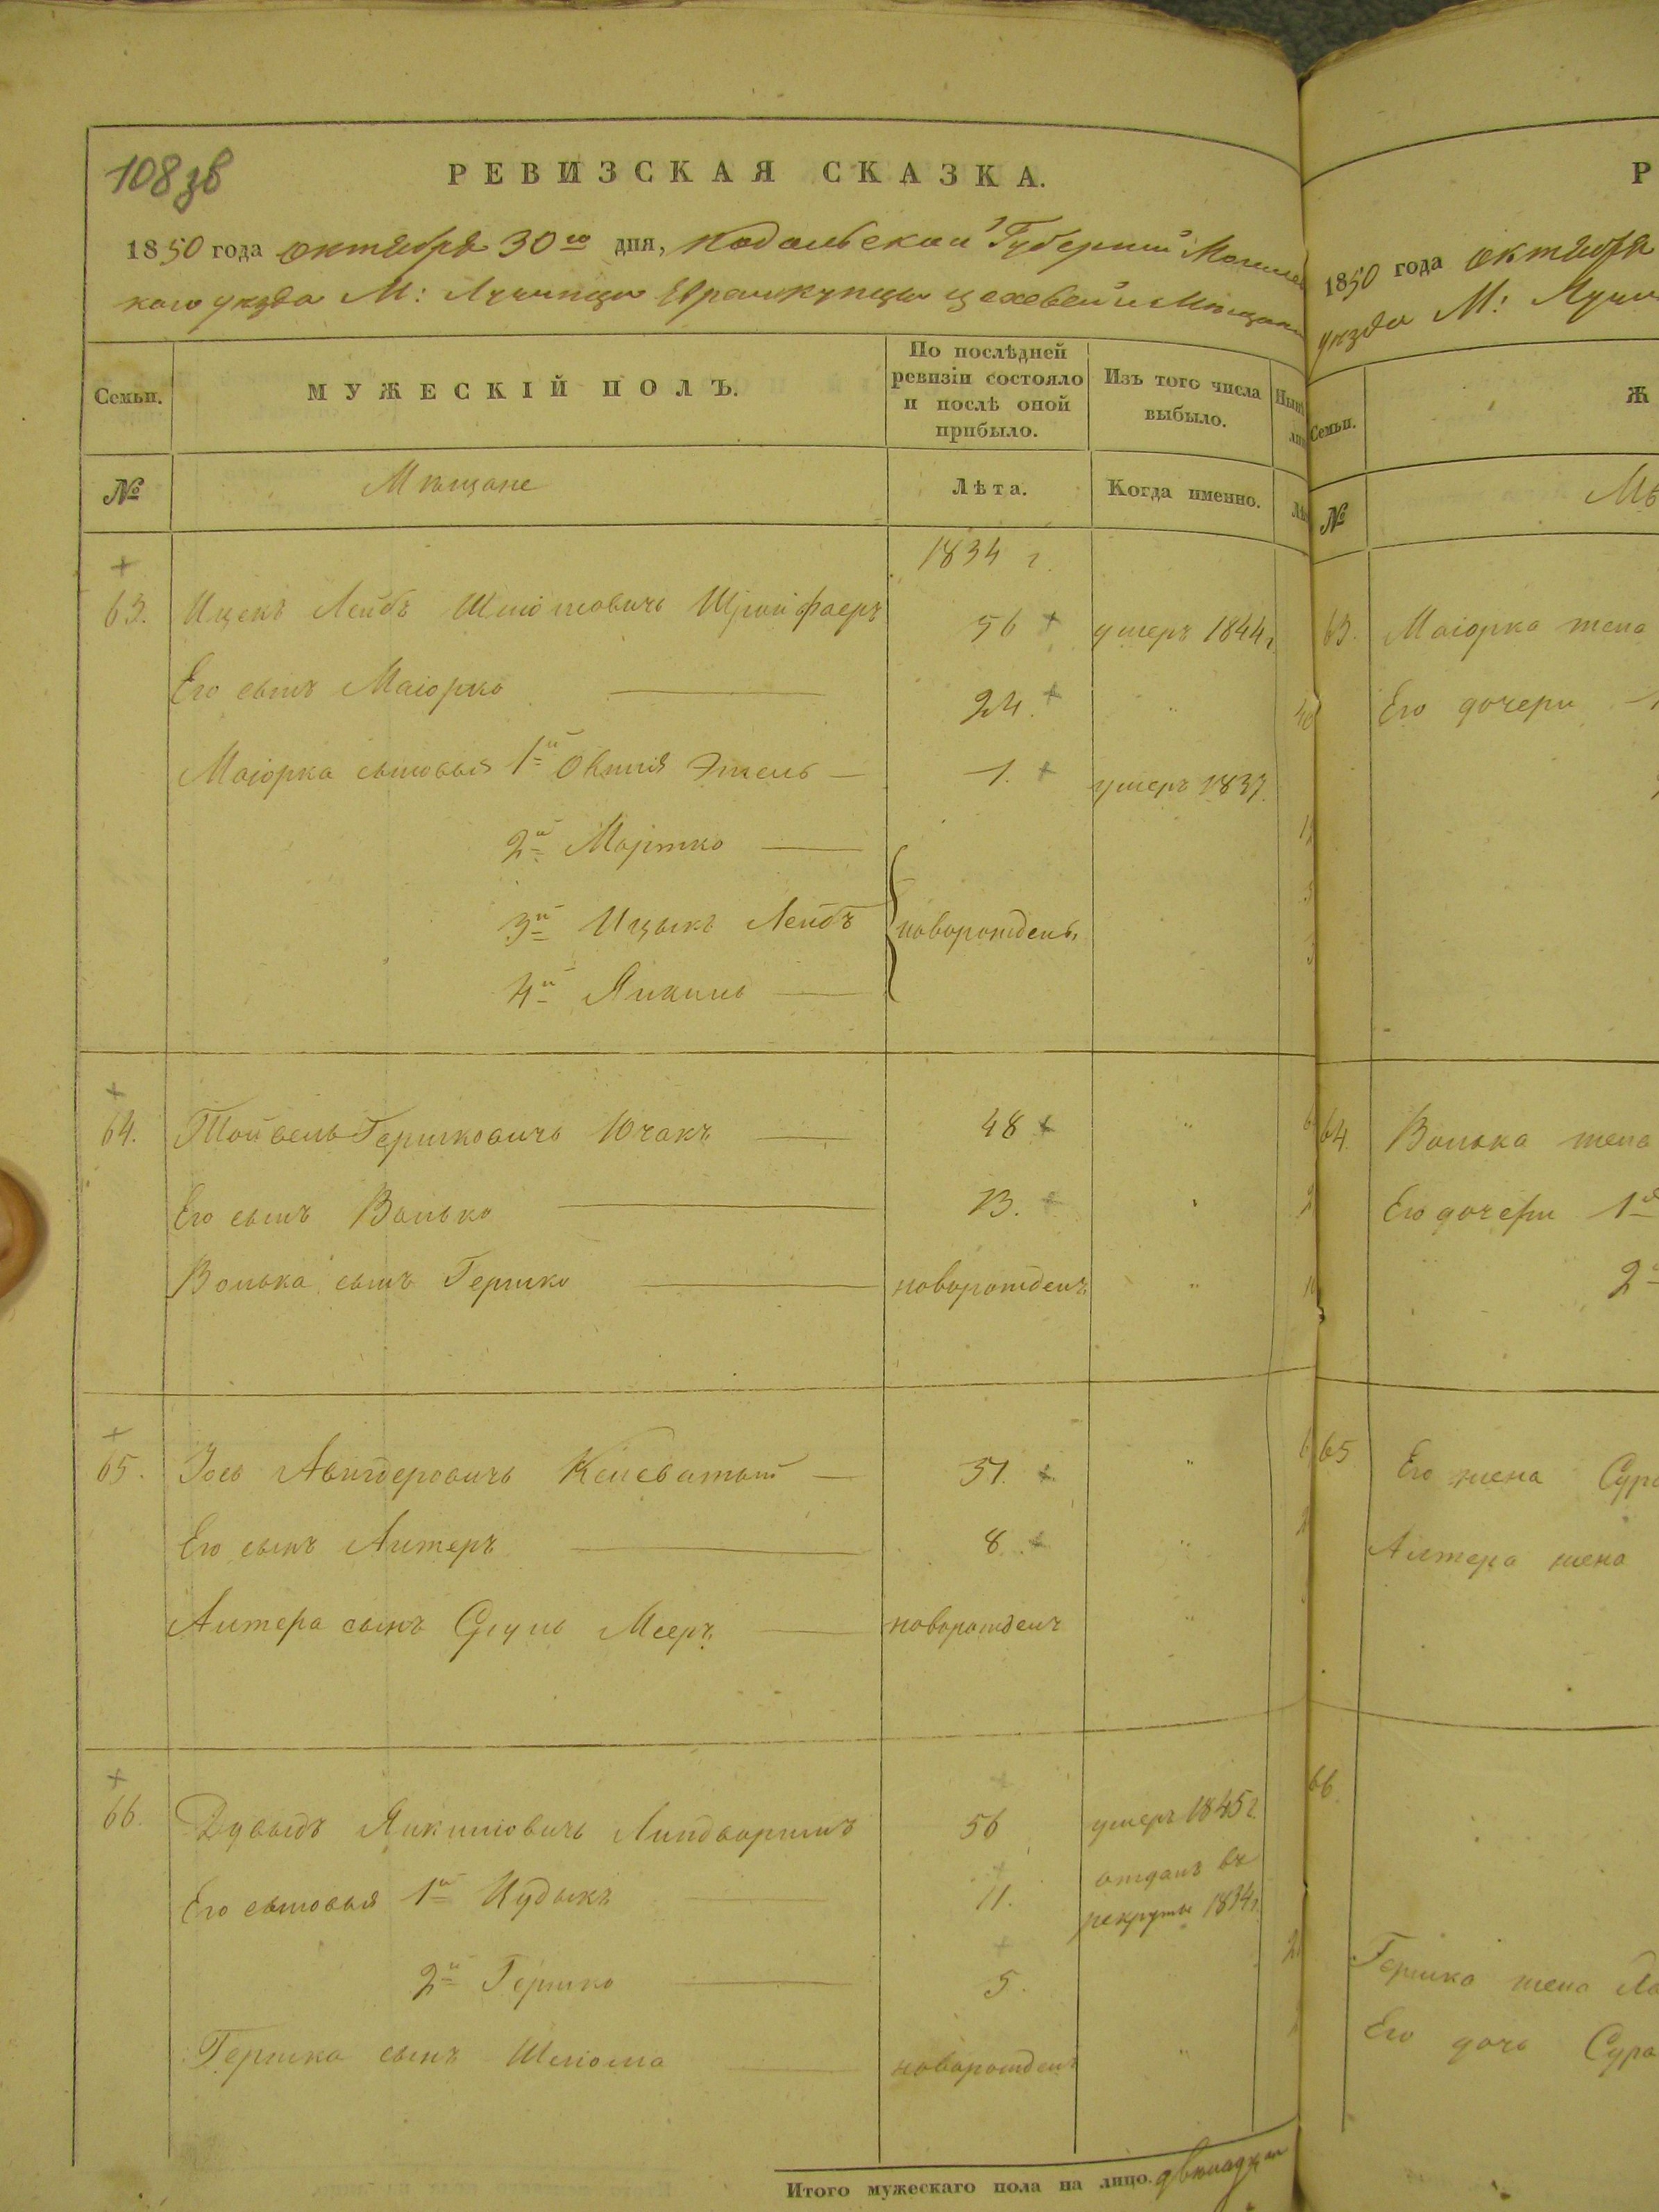 108 зв
РЕВИЗСКАЯ СКАЗКА.
1850 года октября 30го дня, Подольской Губернии Могилев
каго уезда М: Лучинца Евреи купцы цеховей и Мещане
Семьи.
МУЖЕСКІЙ ПОЛЪ.
По послѣдней
ревизіи состояло
и послѣ оной
прибыло.
Изъ того числа
выбыло.
№
Мѣщане
Лѣта.
Когда именно.
1834 г.
63. Ицекъ Лейбъ Шройфаеръ 56 умеръ 1844 г
Его сынъ Маіорко 24.
Маіорка сыновья 1й Овшія Эшель 1. умеръ 1837.
2й Мортко
3й Ицыкъ Лейбъ новорожденъ
4й Янкель
64. Тойвель Гершковичъ Ючакъ 48
Его сынъ Волько 13.
Волька сынъ Гершко новорожденъ
65. Іось Авигдеровичъ Кейсватый 51.
Его сынъ Алтеръ 8.
Алтера сынъ Сруль Мееръ новорожденъ
66. Дувыдъ Янкелевичъ Линдворинъ 56 умеръ 1845 г.
Его сыновья 1й Иудыкъ 11. отданъ въ
рекруты 1834 г.
2й Гершко 5.
Гершка сынъ Шлюома новорожденъ
Итого мужескаго пола на лицо. двенадцать
Р
1850 года октября
уезда М: Лучи
Семьи.
Ж
№
Мѣ
63. Маіорка жена
Его дочери
64 Волька жена
Его дочери 1я
2я
65 Его жена Сура
Алтера жена
66.
Гершка жена
Его дочь Сура